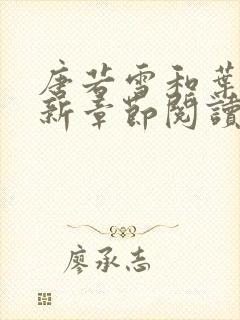 唐若雪和葉
新章節閱讀
廖承志